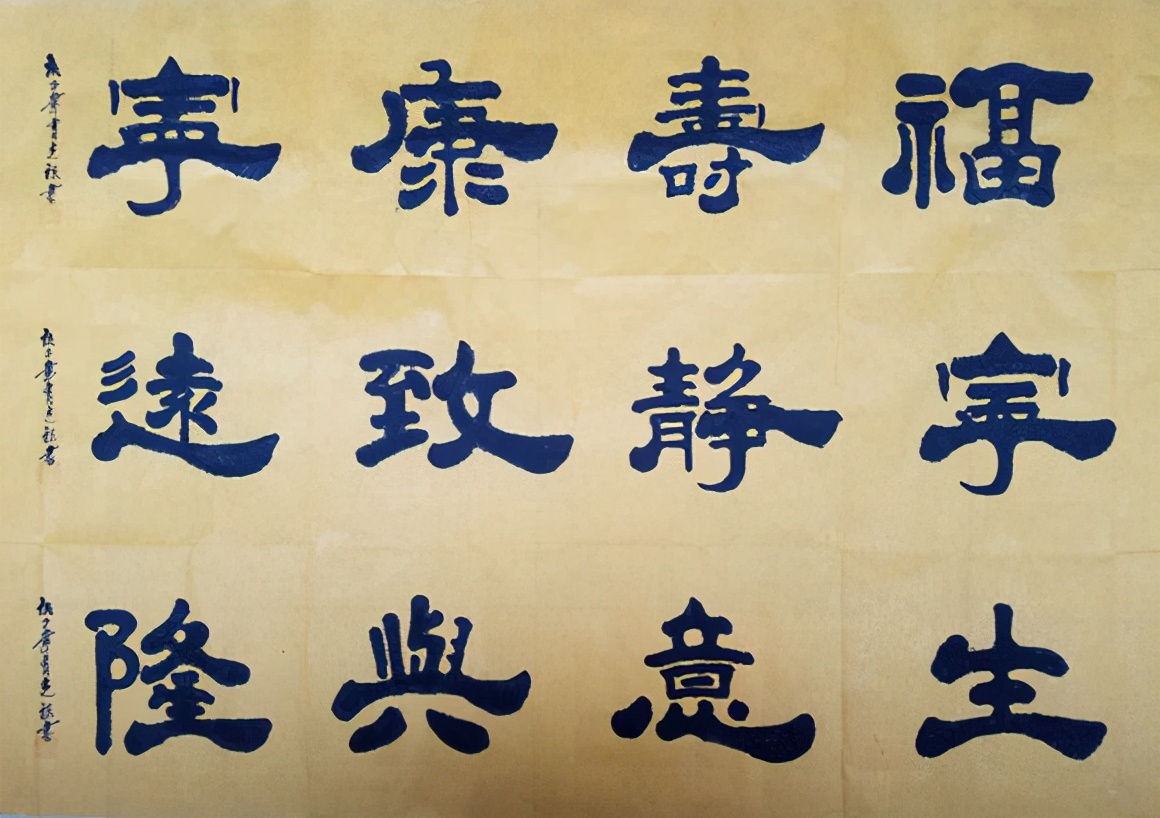 福壽康寧
寧靜致遠
生意與隆